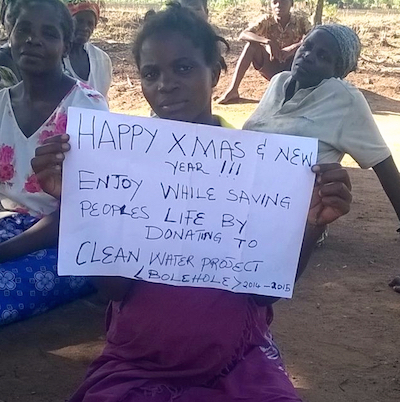 HAPPY XMAS & NEW
YEAR !!!
ENJOY WHILE SAVING
PEOPLES LIFE BY
DONATING TO
CLEAN WATER PROJECT
<BOLEHOLE> 2014-2015